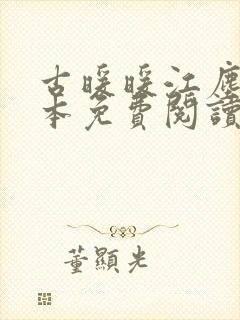 古暖暖江塵
本免費閱讀
董顯光